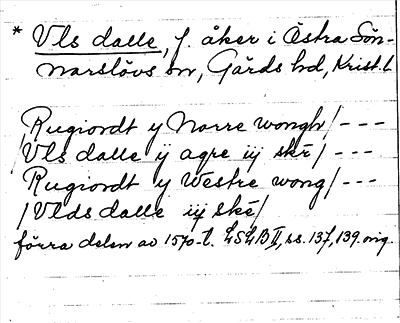 * Vls dalle, f. åker i Östra Sön-
narslövs sn, Gärds hd, Krist. l.
/Rugiordt y Norre wongh/ ---
/Vls dalle ij agre iij skr/ ---
Rugiordt y Westre wong/ ---
/Vlds dalle iiij ske/
förra delen av 1570-t. LSLB II, ss. 137, 139. orig.